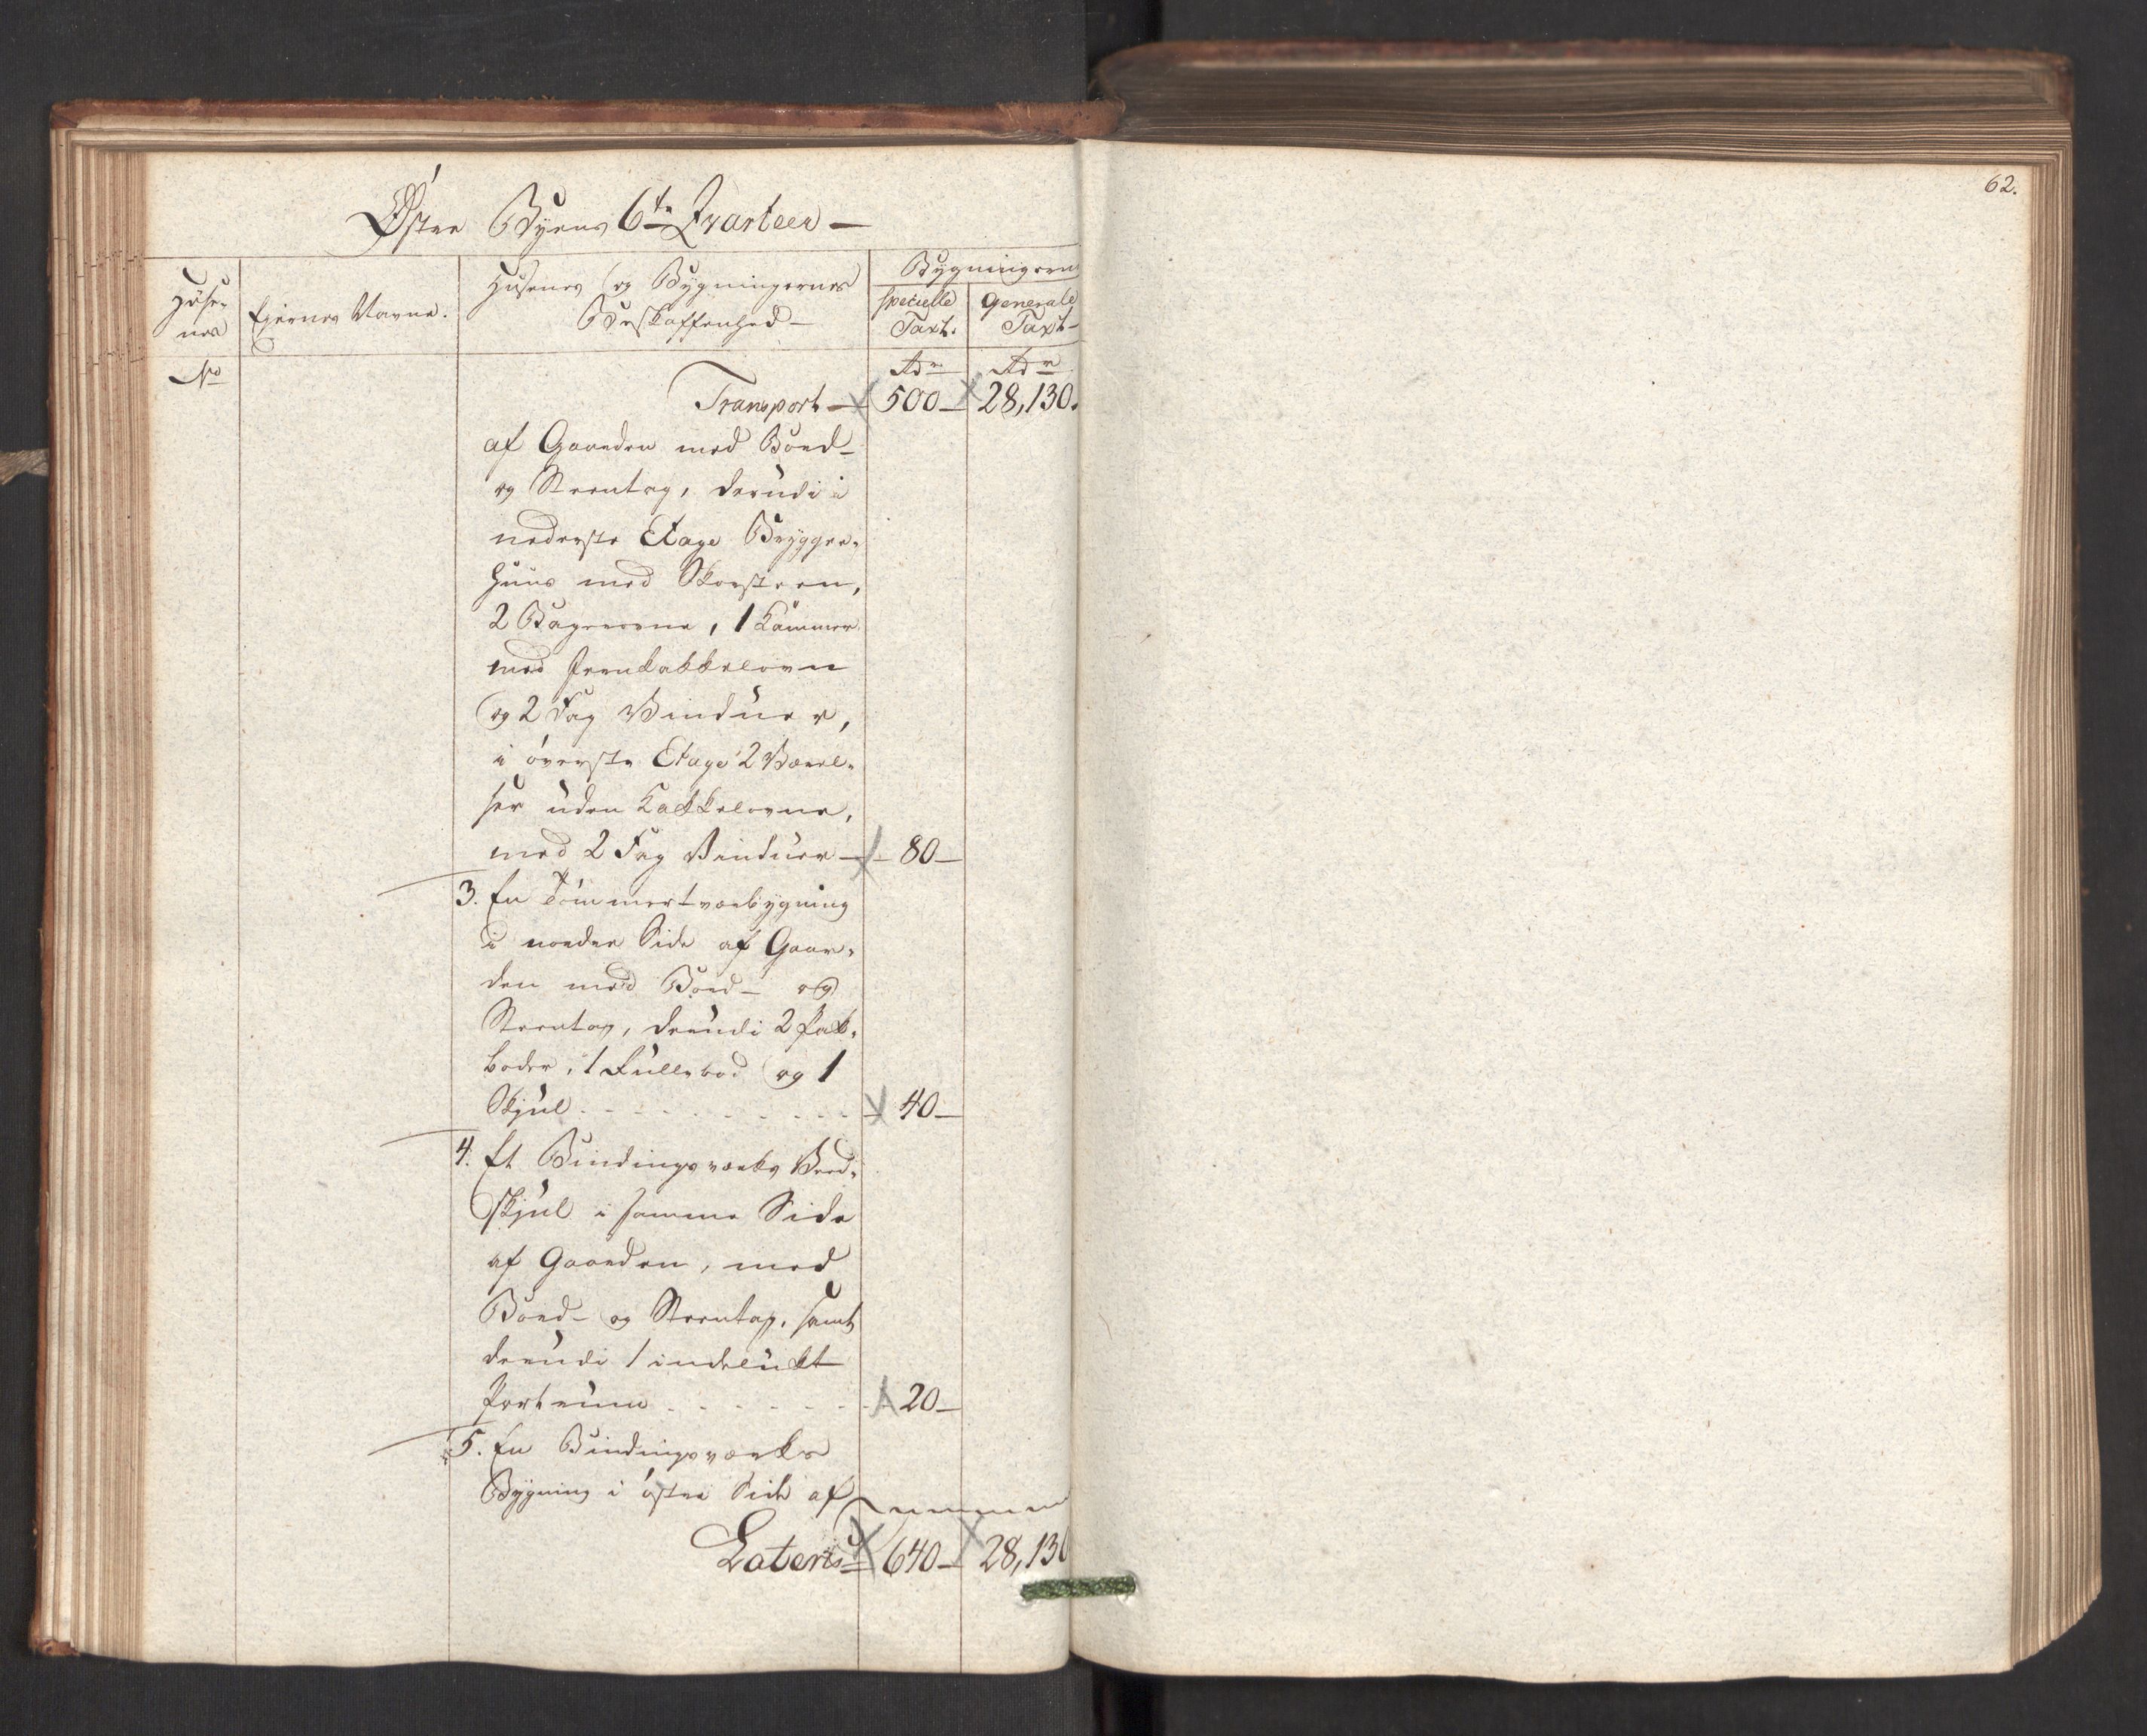 62.
Østre Byens 6te Qvarteer —
Huse-
nes
Ejernes Navne.
Husenes og Bygningernes
Beskaffenhed —
Bygningern
specielle
Taxt.
Generale
Taxt
No
Rdr
Rdr
Transport — 500 — 28,130.
af Gaarden med Bord-
og Steentag, derudi i
nederste Etage Brygger-
huus med Skorsteen,
2 Bagerovne, 1 Kammer
med Jernkakkelovn
og 2 Fag Vinduer,
i øverste Etage 2 Værel-
ser uden Kakkelovne,
med 2 Fag Vinduer — 80 —
3. En Tømmertværbygning
i nordre Side af Gaar-
den med Bord- og
Steentag, derudi 2 Pak-
boder, 1 Kullebod og 1
Skjul . . . . . 40 —
4. Et Bindingsværks Ved-
skjul i samme Side
af Gaarden, med
Bord- og Steentag, samt
derudi 1 indelukt
Portrum . . . . . 20 —
5. En Bindingsværks
Bygning i østre Side af
Lateris 640 — 28,130